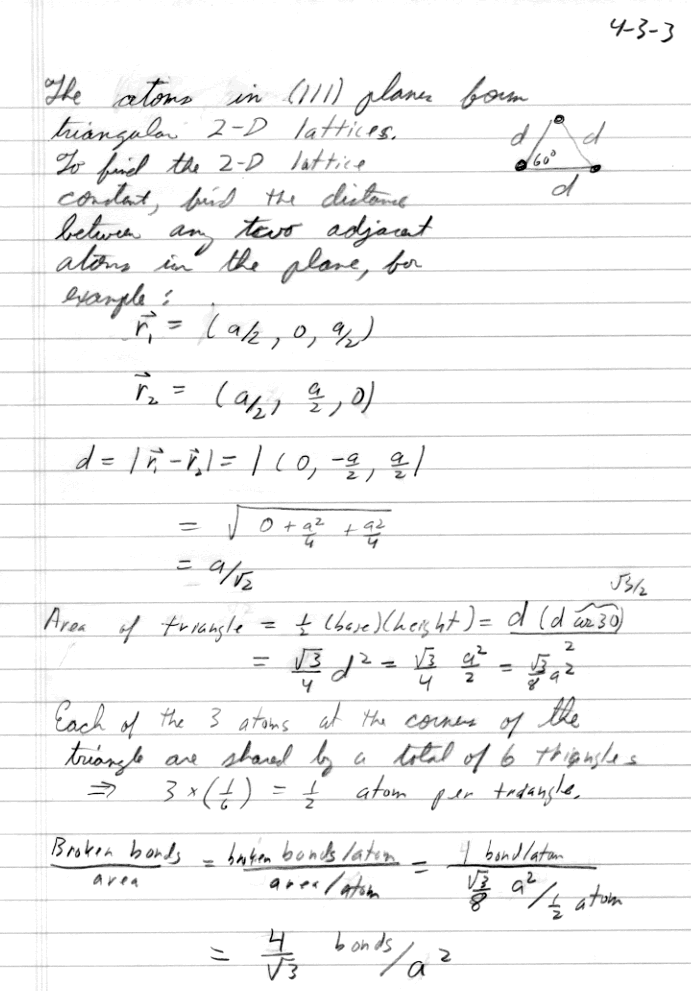 4-3-3
The atoms in (111) planes form
triangular 2-D lattices.
d d
60°
d
To find the 2-D lattice
constant, find the distance
between any two adjacent
atoms in the plane, for
example:
r⃗₁ = (a/2, 0, a/2)
r⃗₂ = (a/2, a/2, 0)
d = |r⃗₁ - r⃗₂| = |(0, -a/2, a/2|
= √(0 + a²/4 + a²/4)
= a/√2
√3/2
Area of triangle = 1/2 (base)(height) = d (d cos 30)/2
= √3/4 d² = √3/4 a²/2 = √3/8 a²
Each of the 3 atoms at the corners of the
triangle are shared by a total of 6 triangles
⇒ 3 × (1/6) = 1/2 atom per triangle.
Broken bonds/area = broken bonds/atom / area/atom = 1 bond/atom / √3/8 a²/ 1/2 atom
= 4/√3 bonds/a²